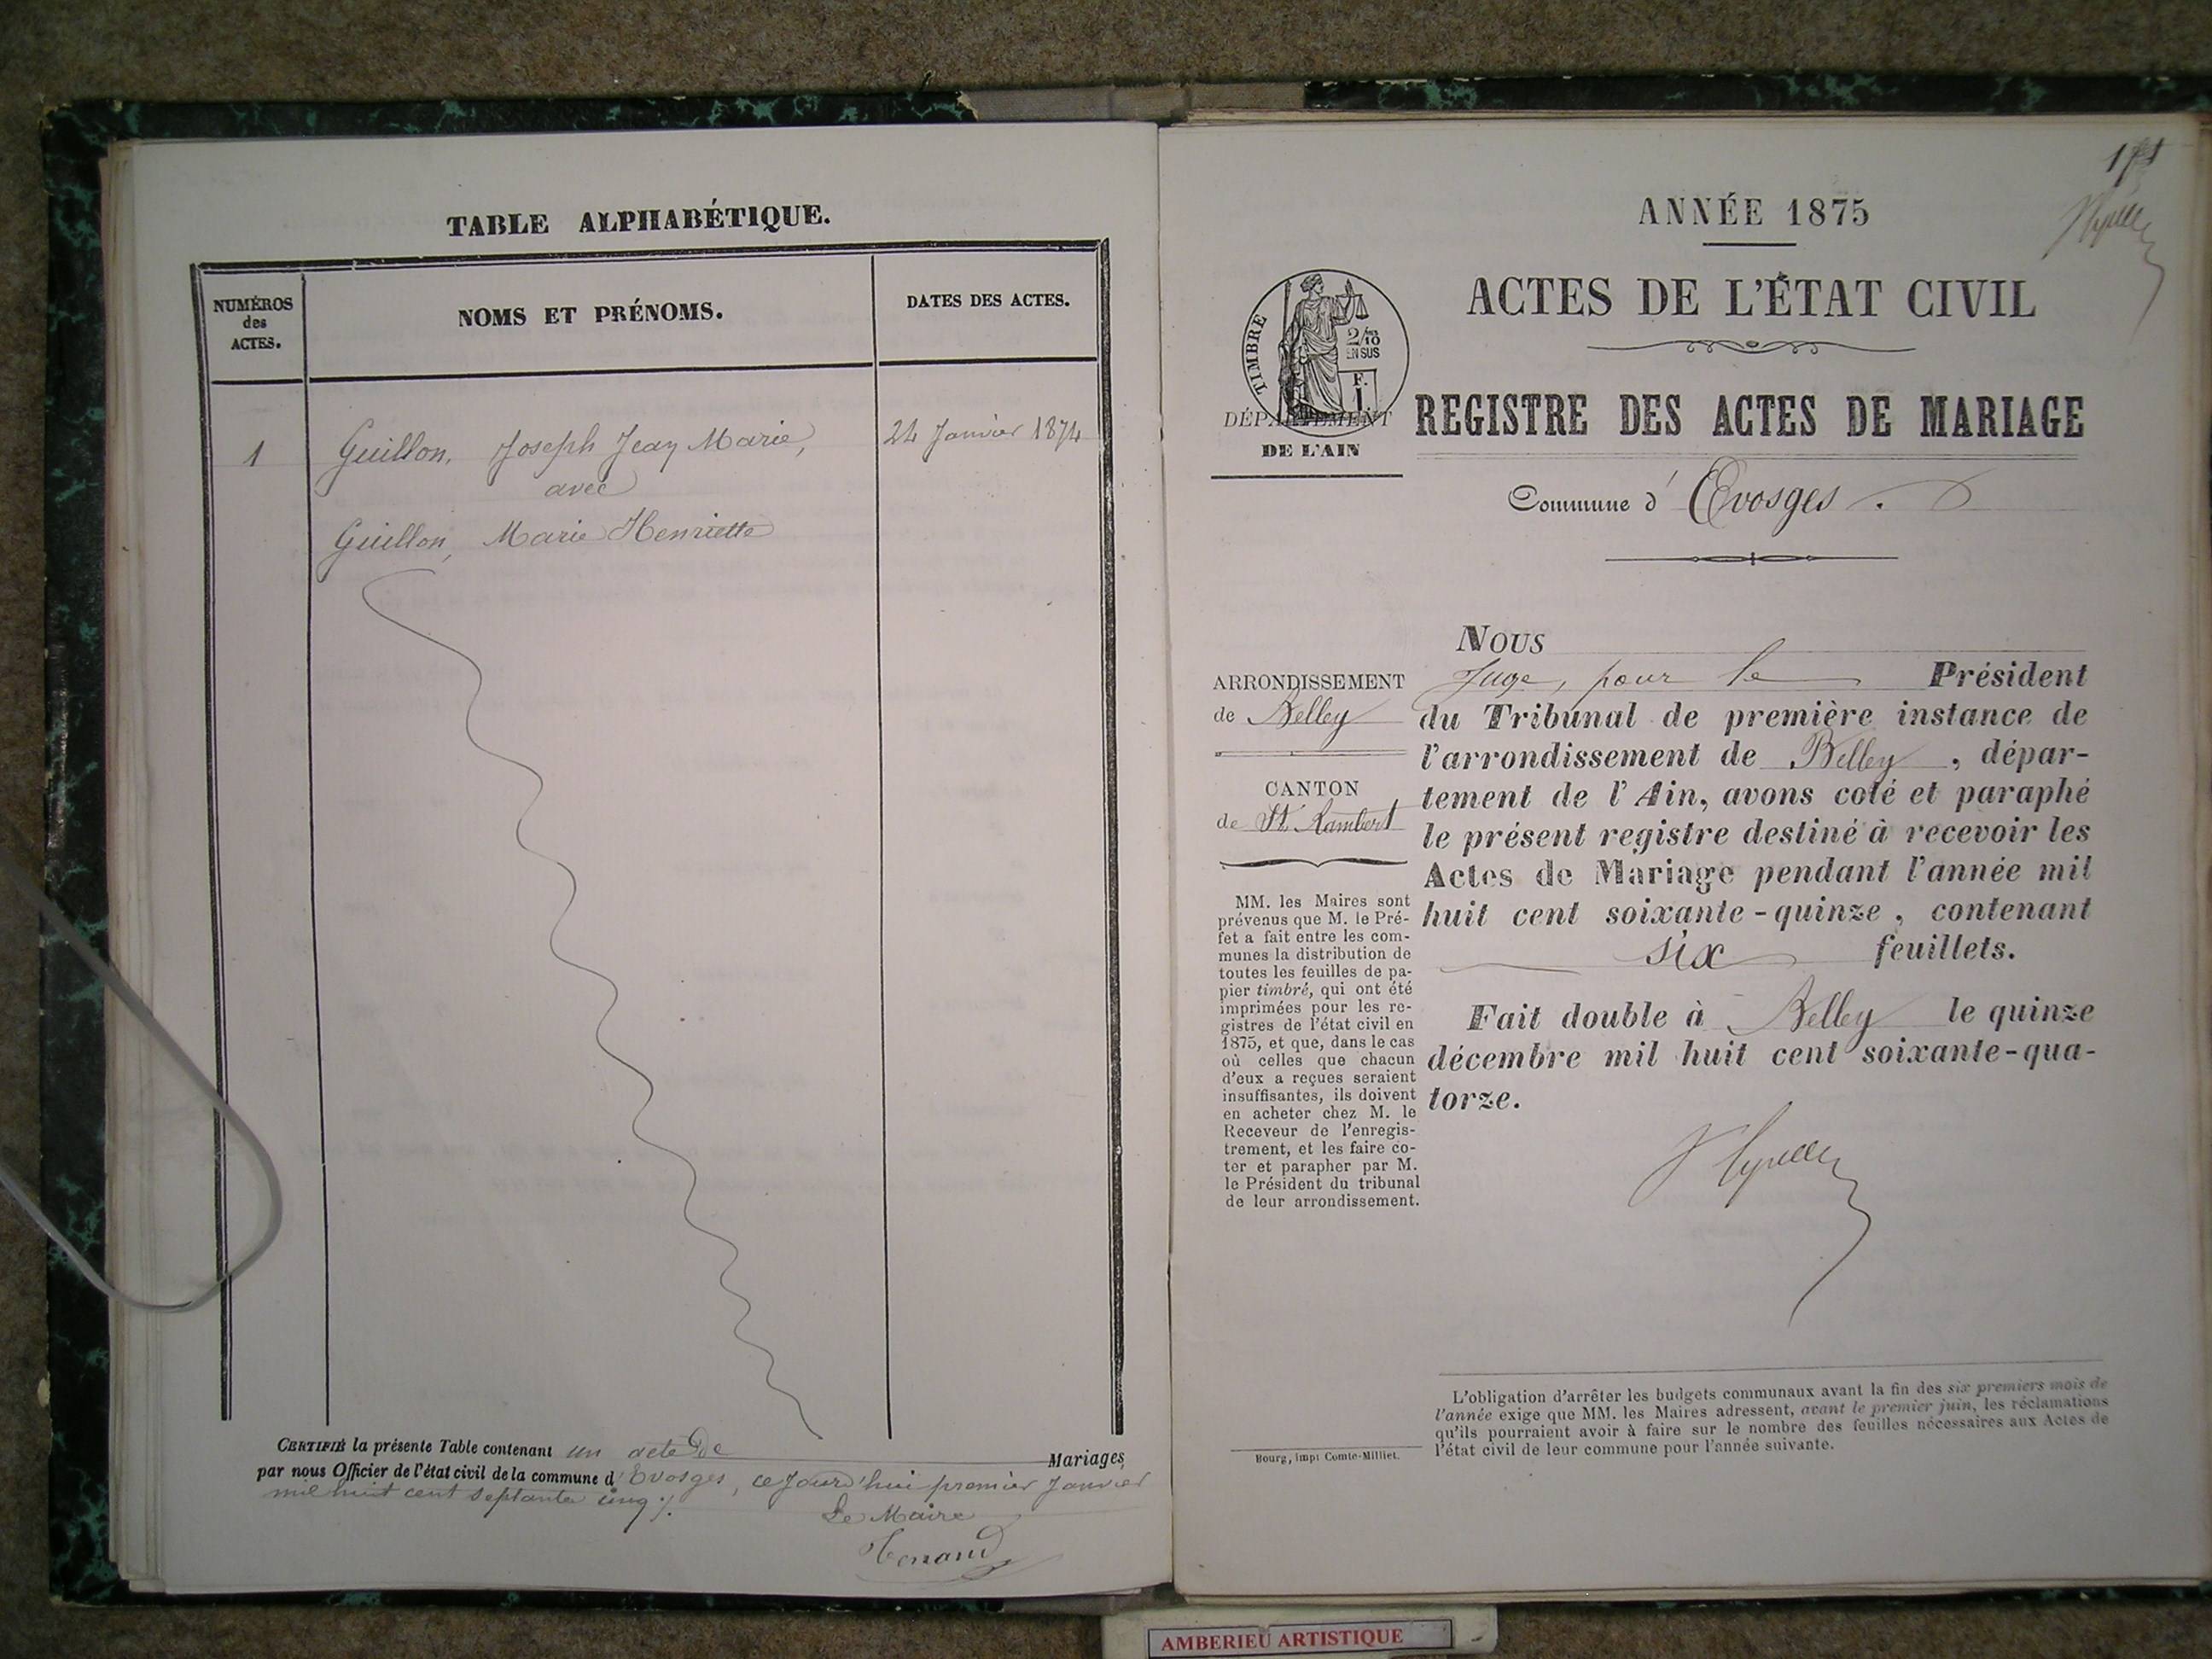 TABLE ALPHABÉTIQUE.
NUMÉROS
des
ACTES.
NOMS ET PRÉNOMS.
DATES DES ACTES.
1
Guillon, Joseph Jean Marie,
24 Janvier 1874
avec
Guillon, Marie Henriette
CERTIFIÉ la présente Table contenant un acte de Mariages
par nous Officier de l'état civil de la commune d'Evosges, ce jourd'hui premier Janvier
mil huit cent septante cinq ./.
Le Maire
ANNÉE 1875
ACTES DE L'ÉTAT CIVIL
TIMBRE
2/10
EN SUS
F.
1.
DÉPARTEMENT
DE L'AIN
REGISTRE DES ACTES DE MARIAGE
Commune d'Evosges.
ARRONDISSEMENT
de Belley
CANTON
de St Rambert
MM. les Maires sont
prévenus que M. le Pré-
fet a fait entre les com-
munes la distribution de
toutes les feuilles de pa-
pier timbré, qui ont été
imprimées pour les re-
gistres de l'état civil en
1875, et que, dans le cas
où celles que chacun
d'eux a reçues seraient
insuffisantes, ils doivent
en acheter chez M. le
Receveur de l'enregis-
trement, et les faire co-
ter et parapher par M.
le Président du tribunal
de leur arrondissement.
NOUS
Juge, pour le Président
du Tribunal de première instance de
l'arrondissement de Belley, dépar-
tement de l'Ain, avons coté et paraphé
le présent registre destiné à recevoir les
Actes de Mariage pendant l'année mil
huit cent soixante-quinze, contenant
six feuillets.
Fait double à Belley le quinze
décembre mil huit cent soixante-qua-
torze.
L'obligation d'arrêter les budgets communaux avant la fin des six premiers mois de
l'année exige que MM. les Maires adressent, avant le premier juin, les réclamations
qu'ils pourraient avoir à faire sur le nombre des feuilles nécessaires aux Actes de
l'état civil de leur commune pour l'année suivante.
Bourg, impr Comte-Milliet.
AMBERIEU ARTISTIQUE